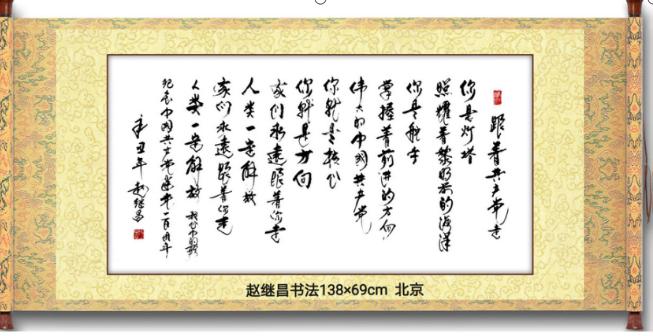 跟着共产党走
你是灯塔
照耀着黎明前的海洋
你是舵手
掌握着前进的方向
伟大的中国共产党
你就是核心
你就是方向
我们永远跟着你走
人类一定解放
我们永远跟着你走
人类一定解放
纪念中国共产党建党一百周年
辛丑年 赵继昌
赵继昌书法138×69cm 北京